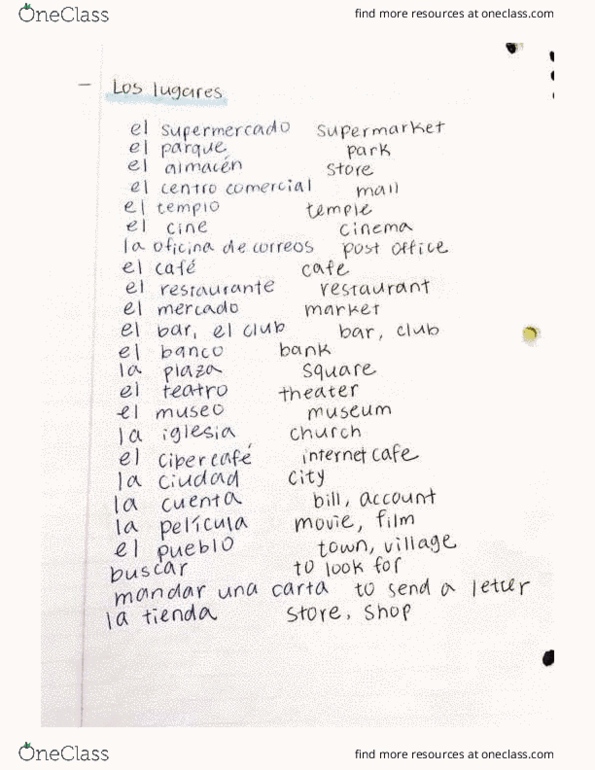 OneClass find more resources at oneclass.com
- Los lugares
el supermercado supermarket
el parque park
el almacén store
el centro comercial mall
el templo temple
el cine cinema
la oficina de correos post office
el café cafe
el restaurante restaurant
el mercado market
el bar, el club bar, club
el banco bank
la plaza square
el teatro theater
el museo museum
la iglesia church
el cibercafé internet cafe
la ciudad city
la cuenta bill, account
la película movie, film
el pueblo town, village
buscar to look for
mandar una carta to send a letter
la tienda store, shop
OneClass find more resources at oneclass.com